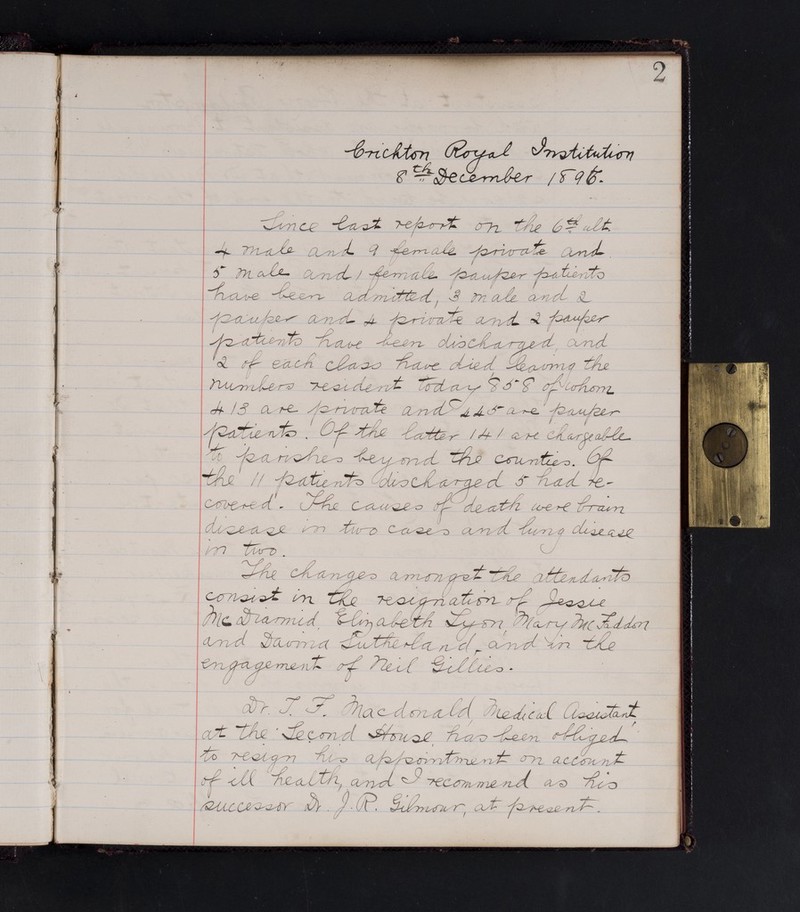 2
Crichton Royal Institution
8th December 1896.
Since last report on the 6th ult
4 male and 9 female private and
5 male and 1 female pauper patients
have been admitted, 3 male and 2
pauper and 4 private and 2 pauper
patients have been discharged, and
2 of each class have died, leaving the
numbers resident today 858 of whom
413 are private and 445 are pauper
patients. Of the latter 141 are chargeable
to parishes beyond the counties. Of
the 11 patients discharged 5 had re-
covered. The causes of death were brain
disease in two cases and lung disease
in two.
The changes amongst the attendants
consist in the resignation of Jessie
McDiarmid, Elizabeth Lyon, Mary McFaddon
and Davina Sutherland, and in the
engagement of Neil Gillies.
Dr. T. F. Macdonald, Medical Assistant,
at the Second House has been obliged
to resign his appointment on account
of ill health, and I recommend as his
successor Dr. J. R. Gilmour, at present